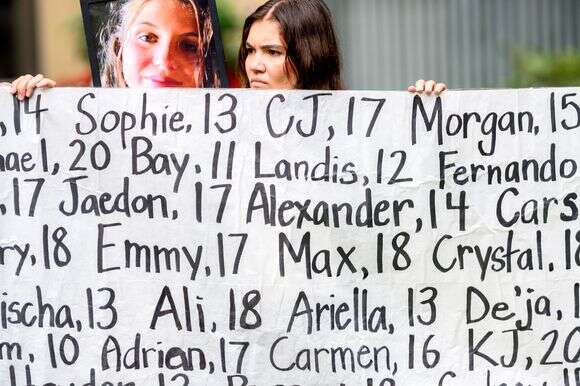 14 Sophie, 13 CJ, 17 Morgan, 15
ael, 20 Bay, 11 Landis, 12 Fernando
17 Jaedon, 17 Alexander, 14 Cars
ry, 18 Emmy, 17 Max, 18 Crystal, 18
ischa, 13 Ali, 18 Ariella, 13 De'ja, 1
m, 10 Adrian, 17 Carmen, 16 KJ, 20